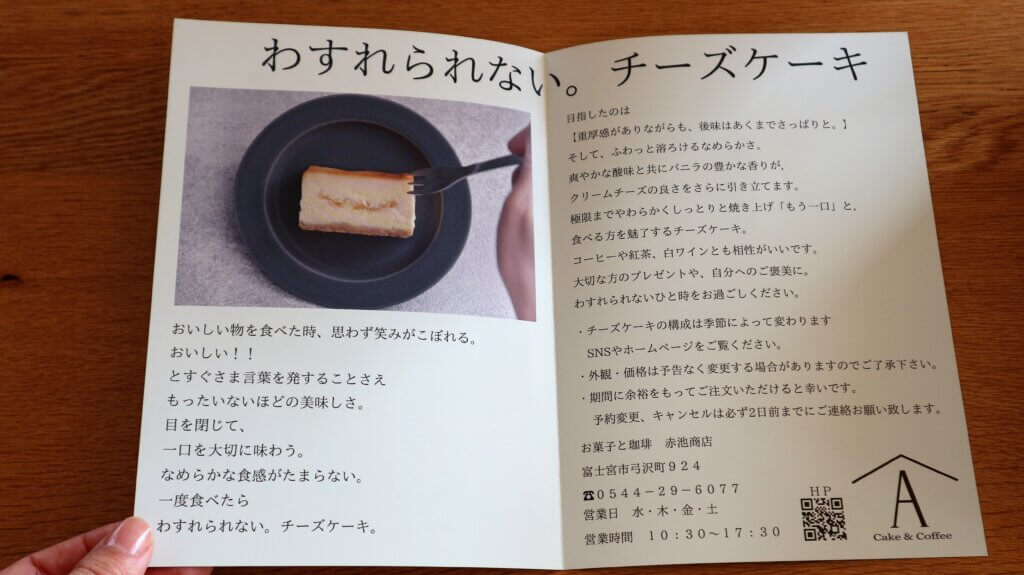 わすれられない。チーズケーキ
おいしい物を食べた時、思わず笑みがこぼれる。
おいしい！！
とすぐさま言葉を発することさえ
もったいないほどの美味しさ。
目を閉じて、
一口を大切に味わう。
なめらかな食感がたまらない。
一度食べたら
わすれられない。チーズケーキ。
目指したのは
【重厚感がありながらも、後味はあくまでさっぱりと。】
そして、ふわっと溶ろけるなめらかさ。
爽やかな酸味と共にバニラの豊かな香りが、
クリームチーズの良さをさらに引き立てます。
極限までやわらかくしっとりと焼き上げ「もう一口」と、
食べる方を魅了するチーズケーキ。
コーヒーや紅茶、白ワインとも相性がいいです。
大切な方のプレゼントや、自分へのご褒美に。
わすれられないひと時をお過ごしください。
・チーズケーキの構成は季節によって変わります
SNSやホームページをご覧ください。
・外観・価格は予告なく変更する場合がありますのでご了承下さい。
・期間に余裕をもってご注文いただけると幸いです。
予約変更、キャンセルは必ず2日前までにご連絡お願い致します。
お菓子と珈琲　赤池商店
富士宮市弓沢町９２４
☎０５４４－２９－６０７７
営業日　水・木・金・土
営業時間　１０：３０～１７：３０
ＨＰ
A
Cake & Coffee